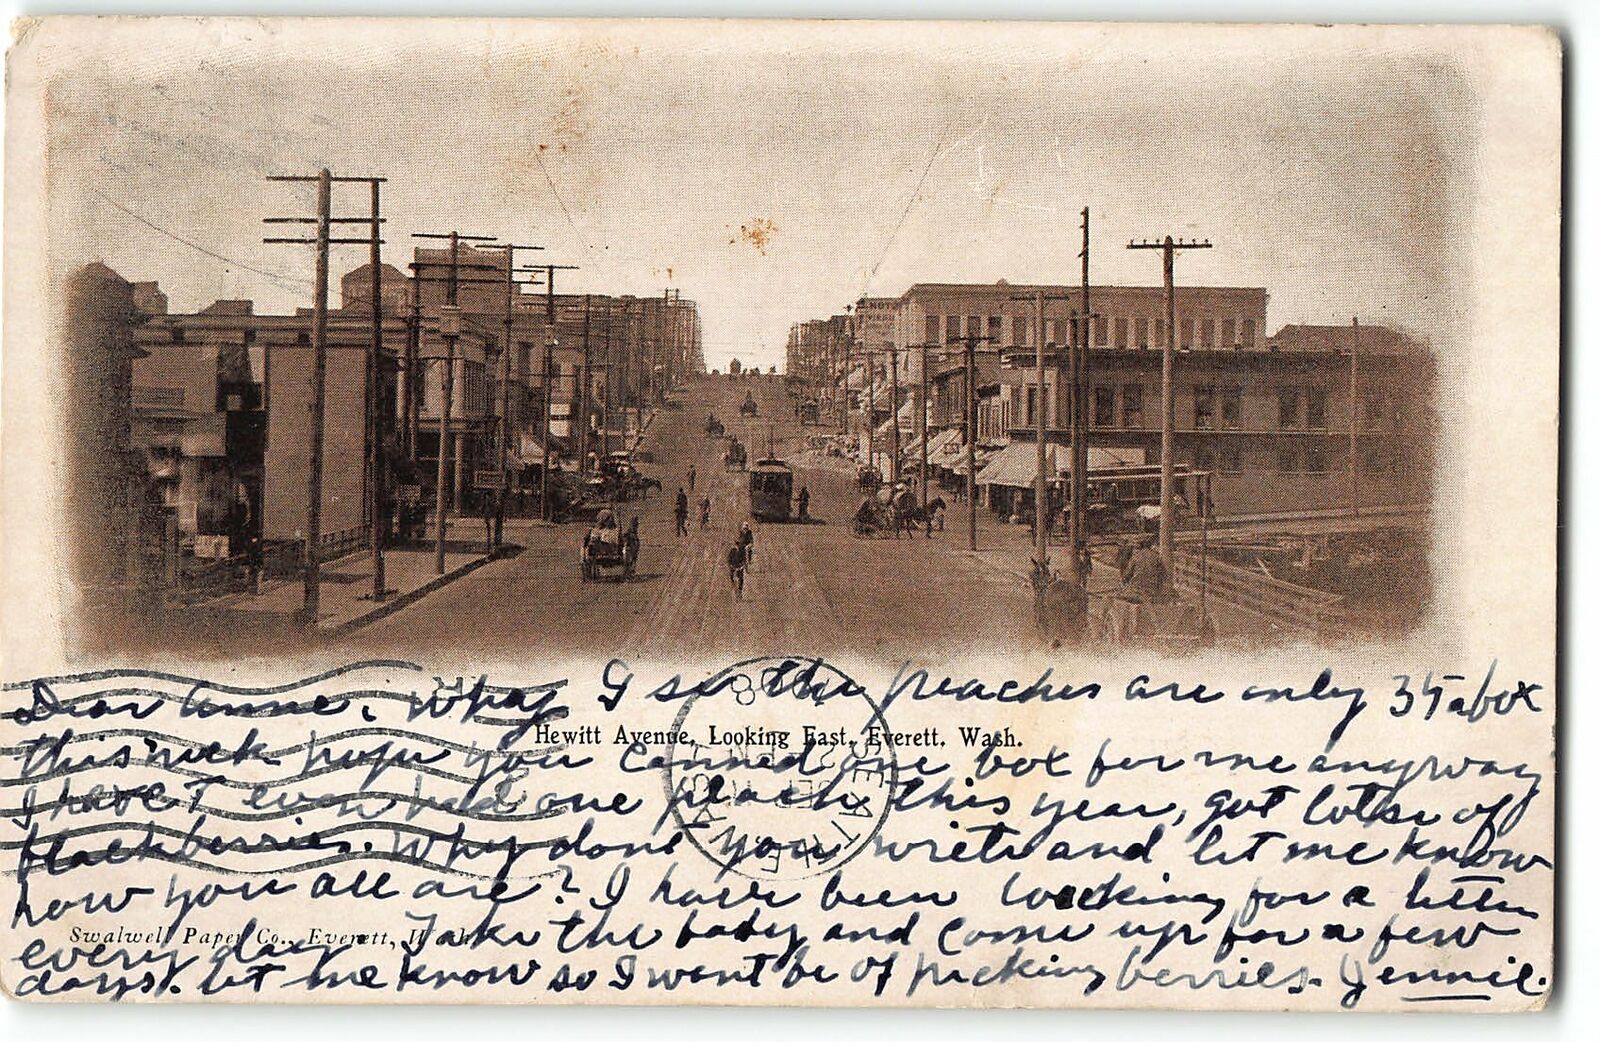 Dear Anne. Why I see the peaches are only 35 a box
Hewitt Avenue, Looking East, Everett, Wash.
this week hope you canned one box for me anyway
I have't even had one peach this year, got lots of
blackberries. Why dont you write and let me know
how you all are? I have been looking for a letter
Swalwell Paper Co., Everett, Wash.
every day Take the baby and come up for a few
days. let me know so I wont be of picking berries. Jennie.
SEATTLE
WASH